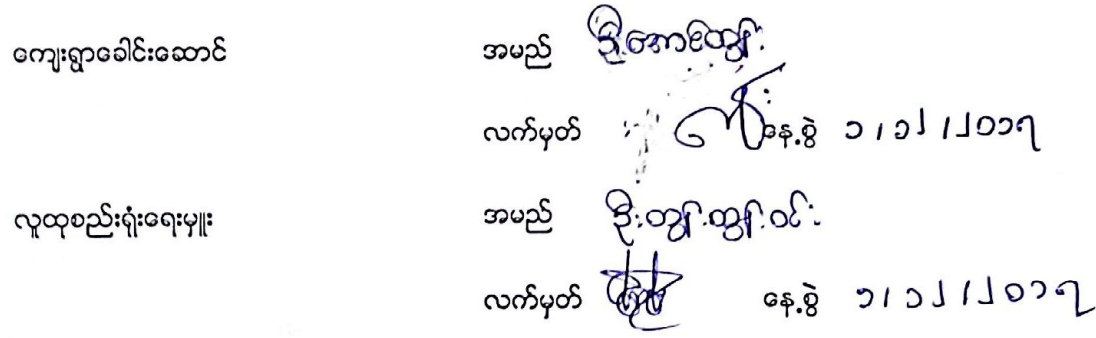 ကျေးရွာခေါင်းဆောင် အမည် ဦးအောင်ထွန်း
လက်မှတ် နေ့စွဲ ၁/၁၂/၂၀၁၇
လူထုစည်းရုံးရေးမှူး အမည် ဦးထွန်းထွန်းဝင်း
လက်မှတ် နေ့စွဲ ၁/၁၂/၂၀၁၇